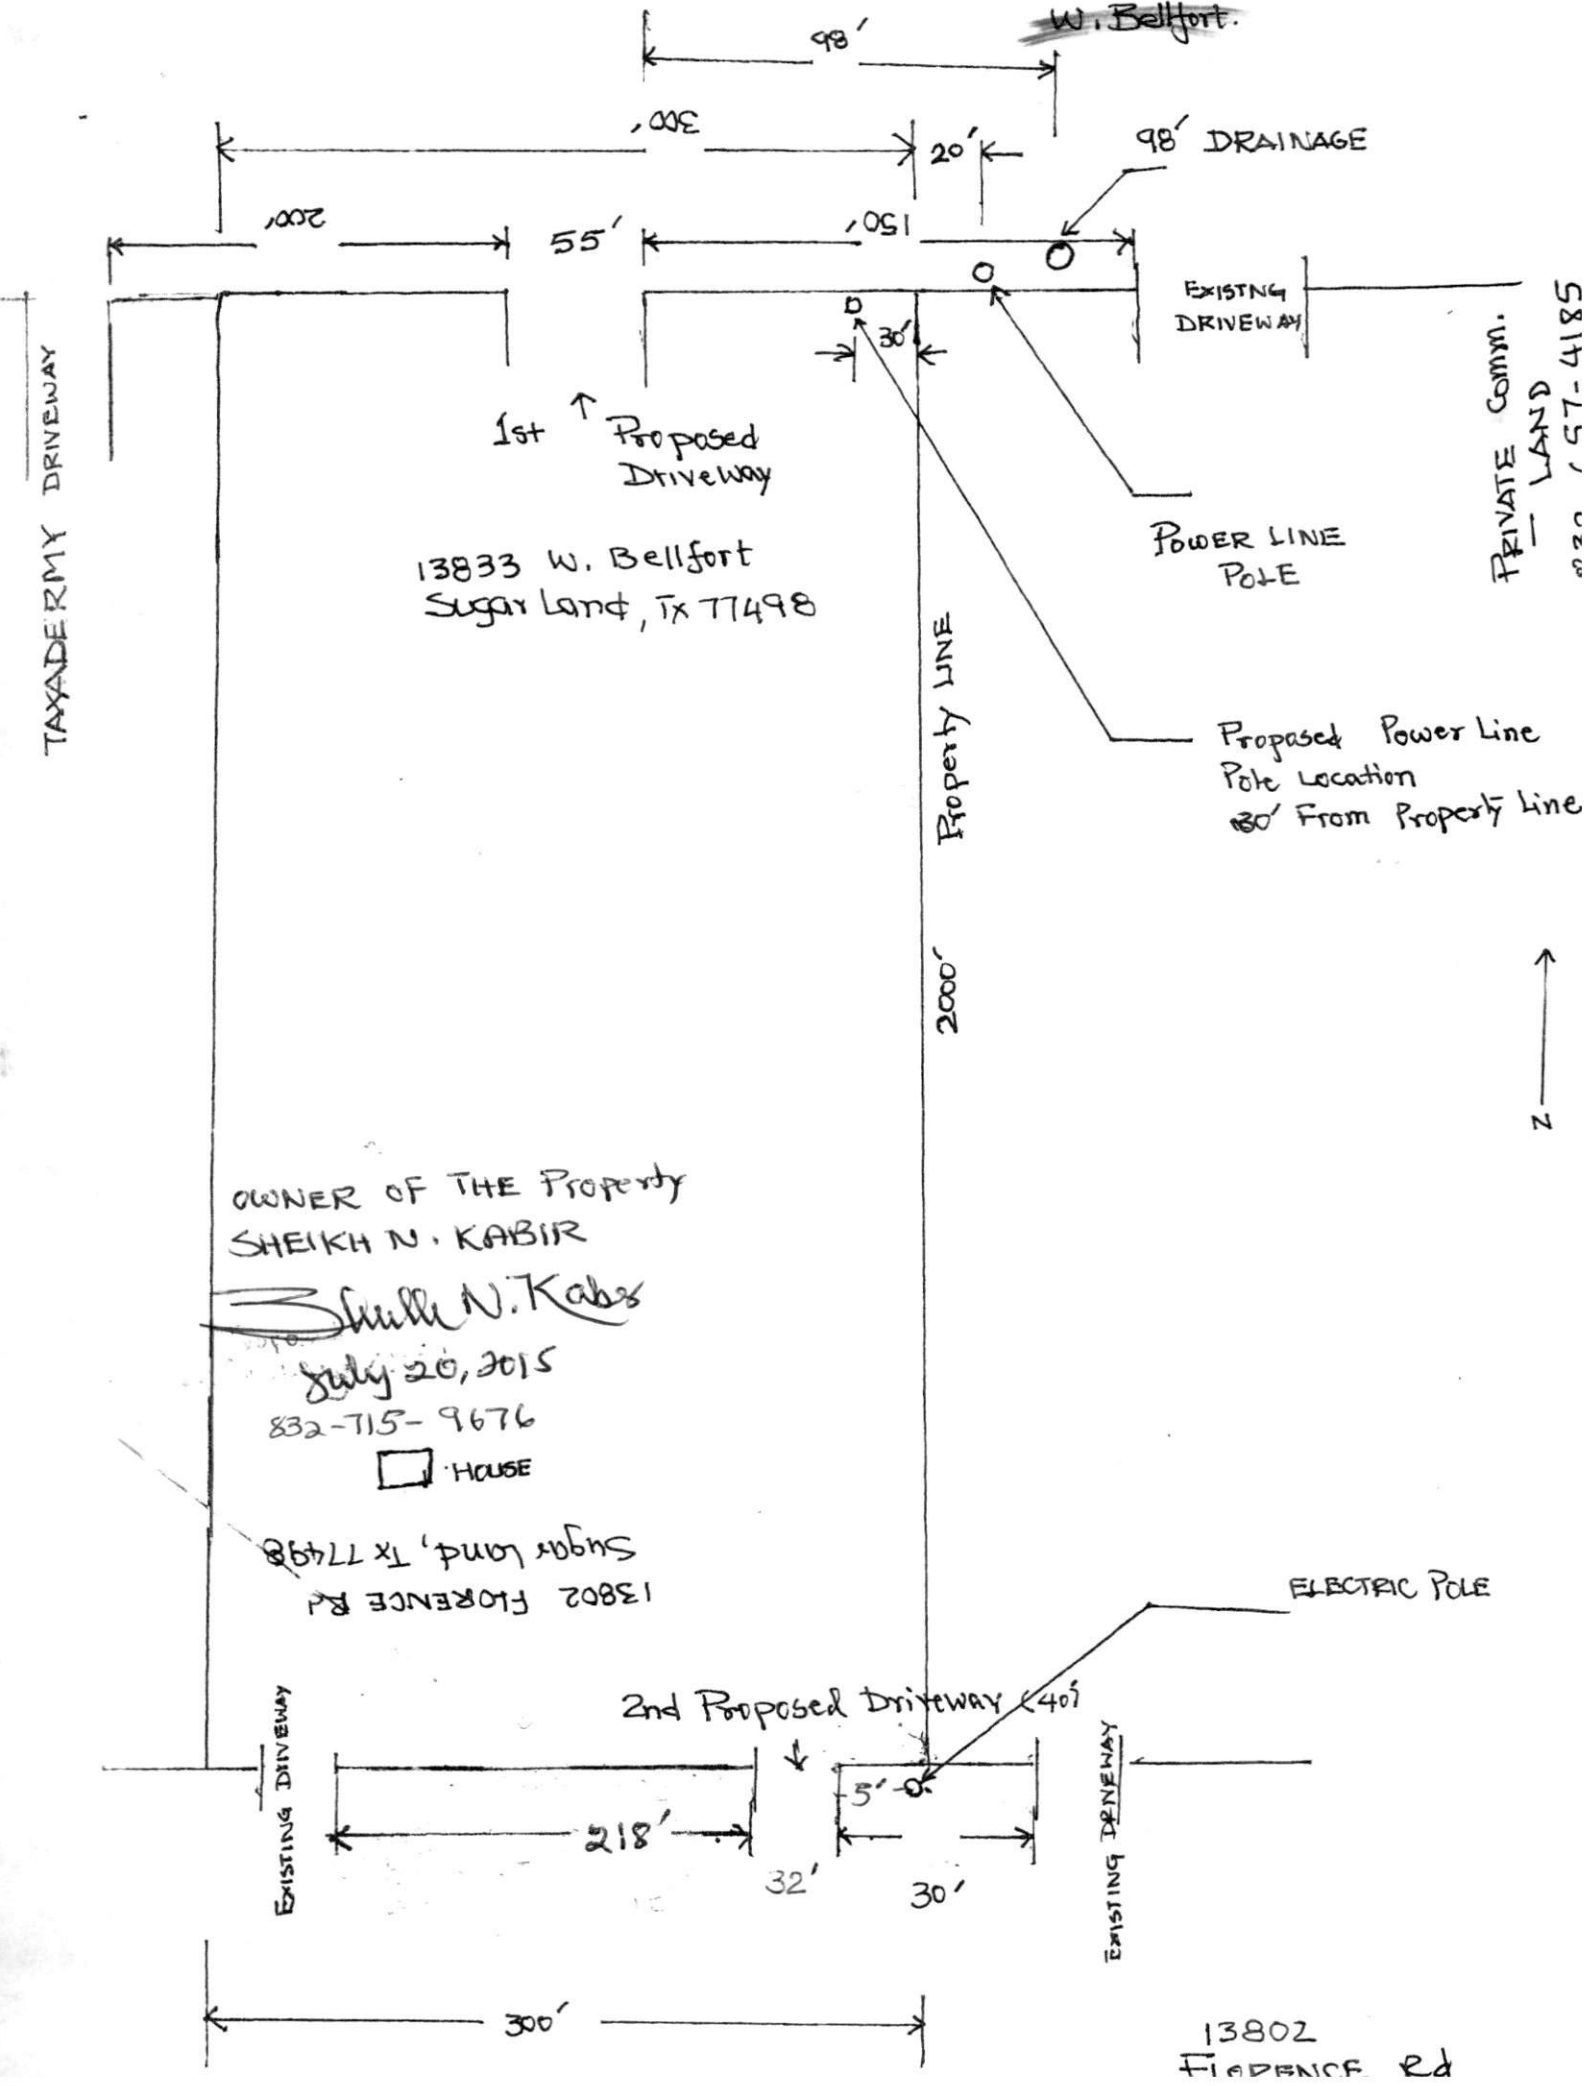 W. Bellfort.
98'
300'
20'
98' DRAINAGE
200'
55'
150'
EXISTNG
DRIVEWAY
30'
TAXADERMY DRIVEWAY
1st Proposed
Driveway
PRIVATE Comm.
LAND
POWER LINE
POLE
13833 W. Bellfort
Sugar Land, Tx 77498
Property LINE
2000'
Proposed Power Line
Pole Location
30' From Property Line
N
OWNER OF THE Property
SHEIKH N. KABIR
July 20, 2015
832-715-9676
HOUSE
13802 FLORENCE Rd
Sugar Land, Tx 77498
ELECTRIC POLE
2nd Proposed Driveway (40')
EXISTING DIIVEWAY
5'
218'
32'
30'
EXISTING DRNEWAY
300'
13802
FLORENCE Rd